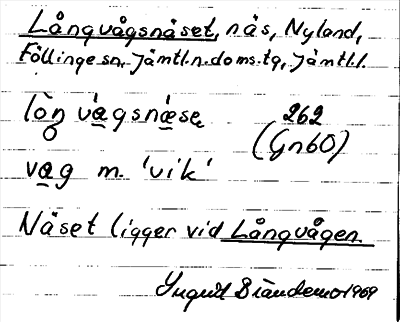 Långvågsnäset, näs, Nyland,
Föllinge sn, Jämtl.n.doms.tg, Jämtl.l.
lòn vágsnǽse 262
(Gn60)
vag m. 'vik'
Näset ligger vid Långvågen.
Ingrid Brändemo 1969